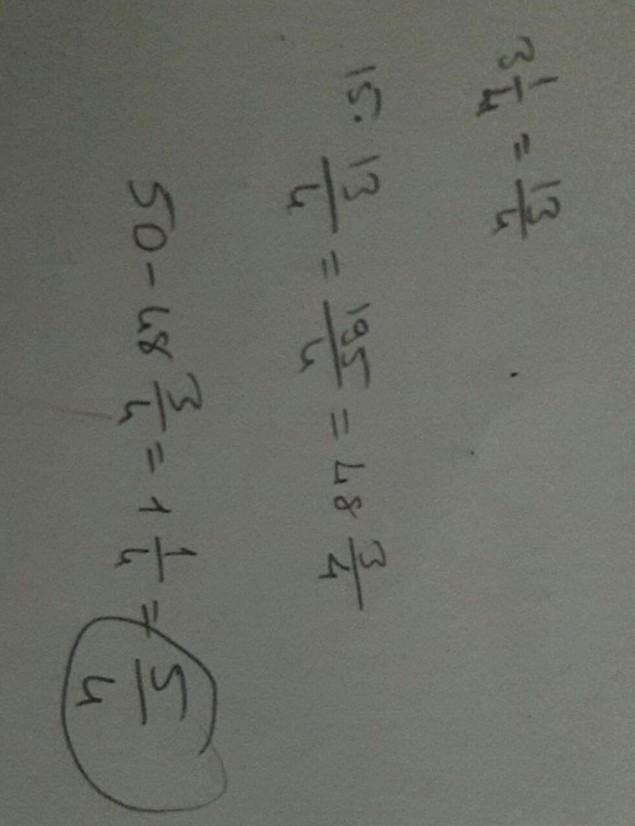 3 1/4 = 13/4
15 · 13/4 = 195/4 = 48 3/4
50 - 48 3/4 = 1 1/4 = 5/4